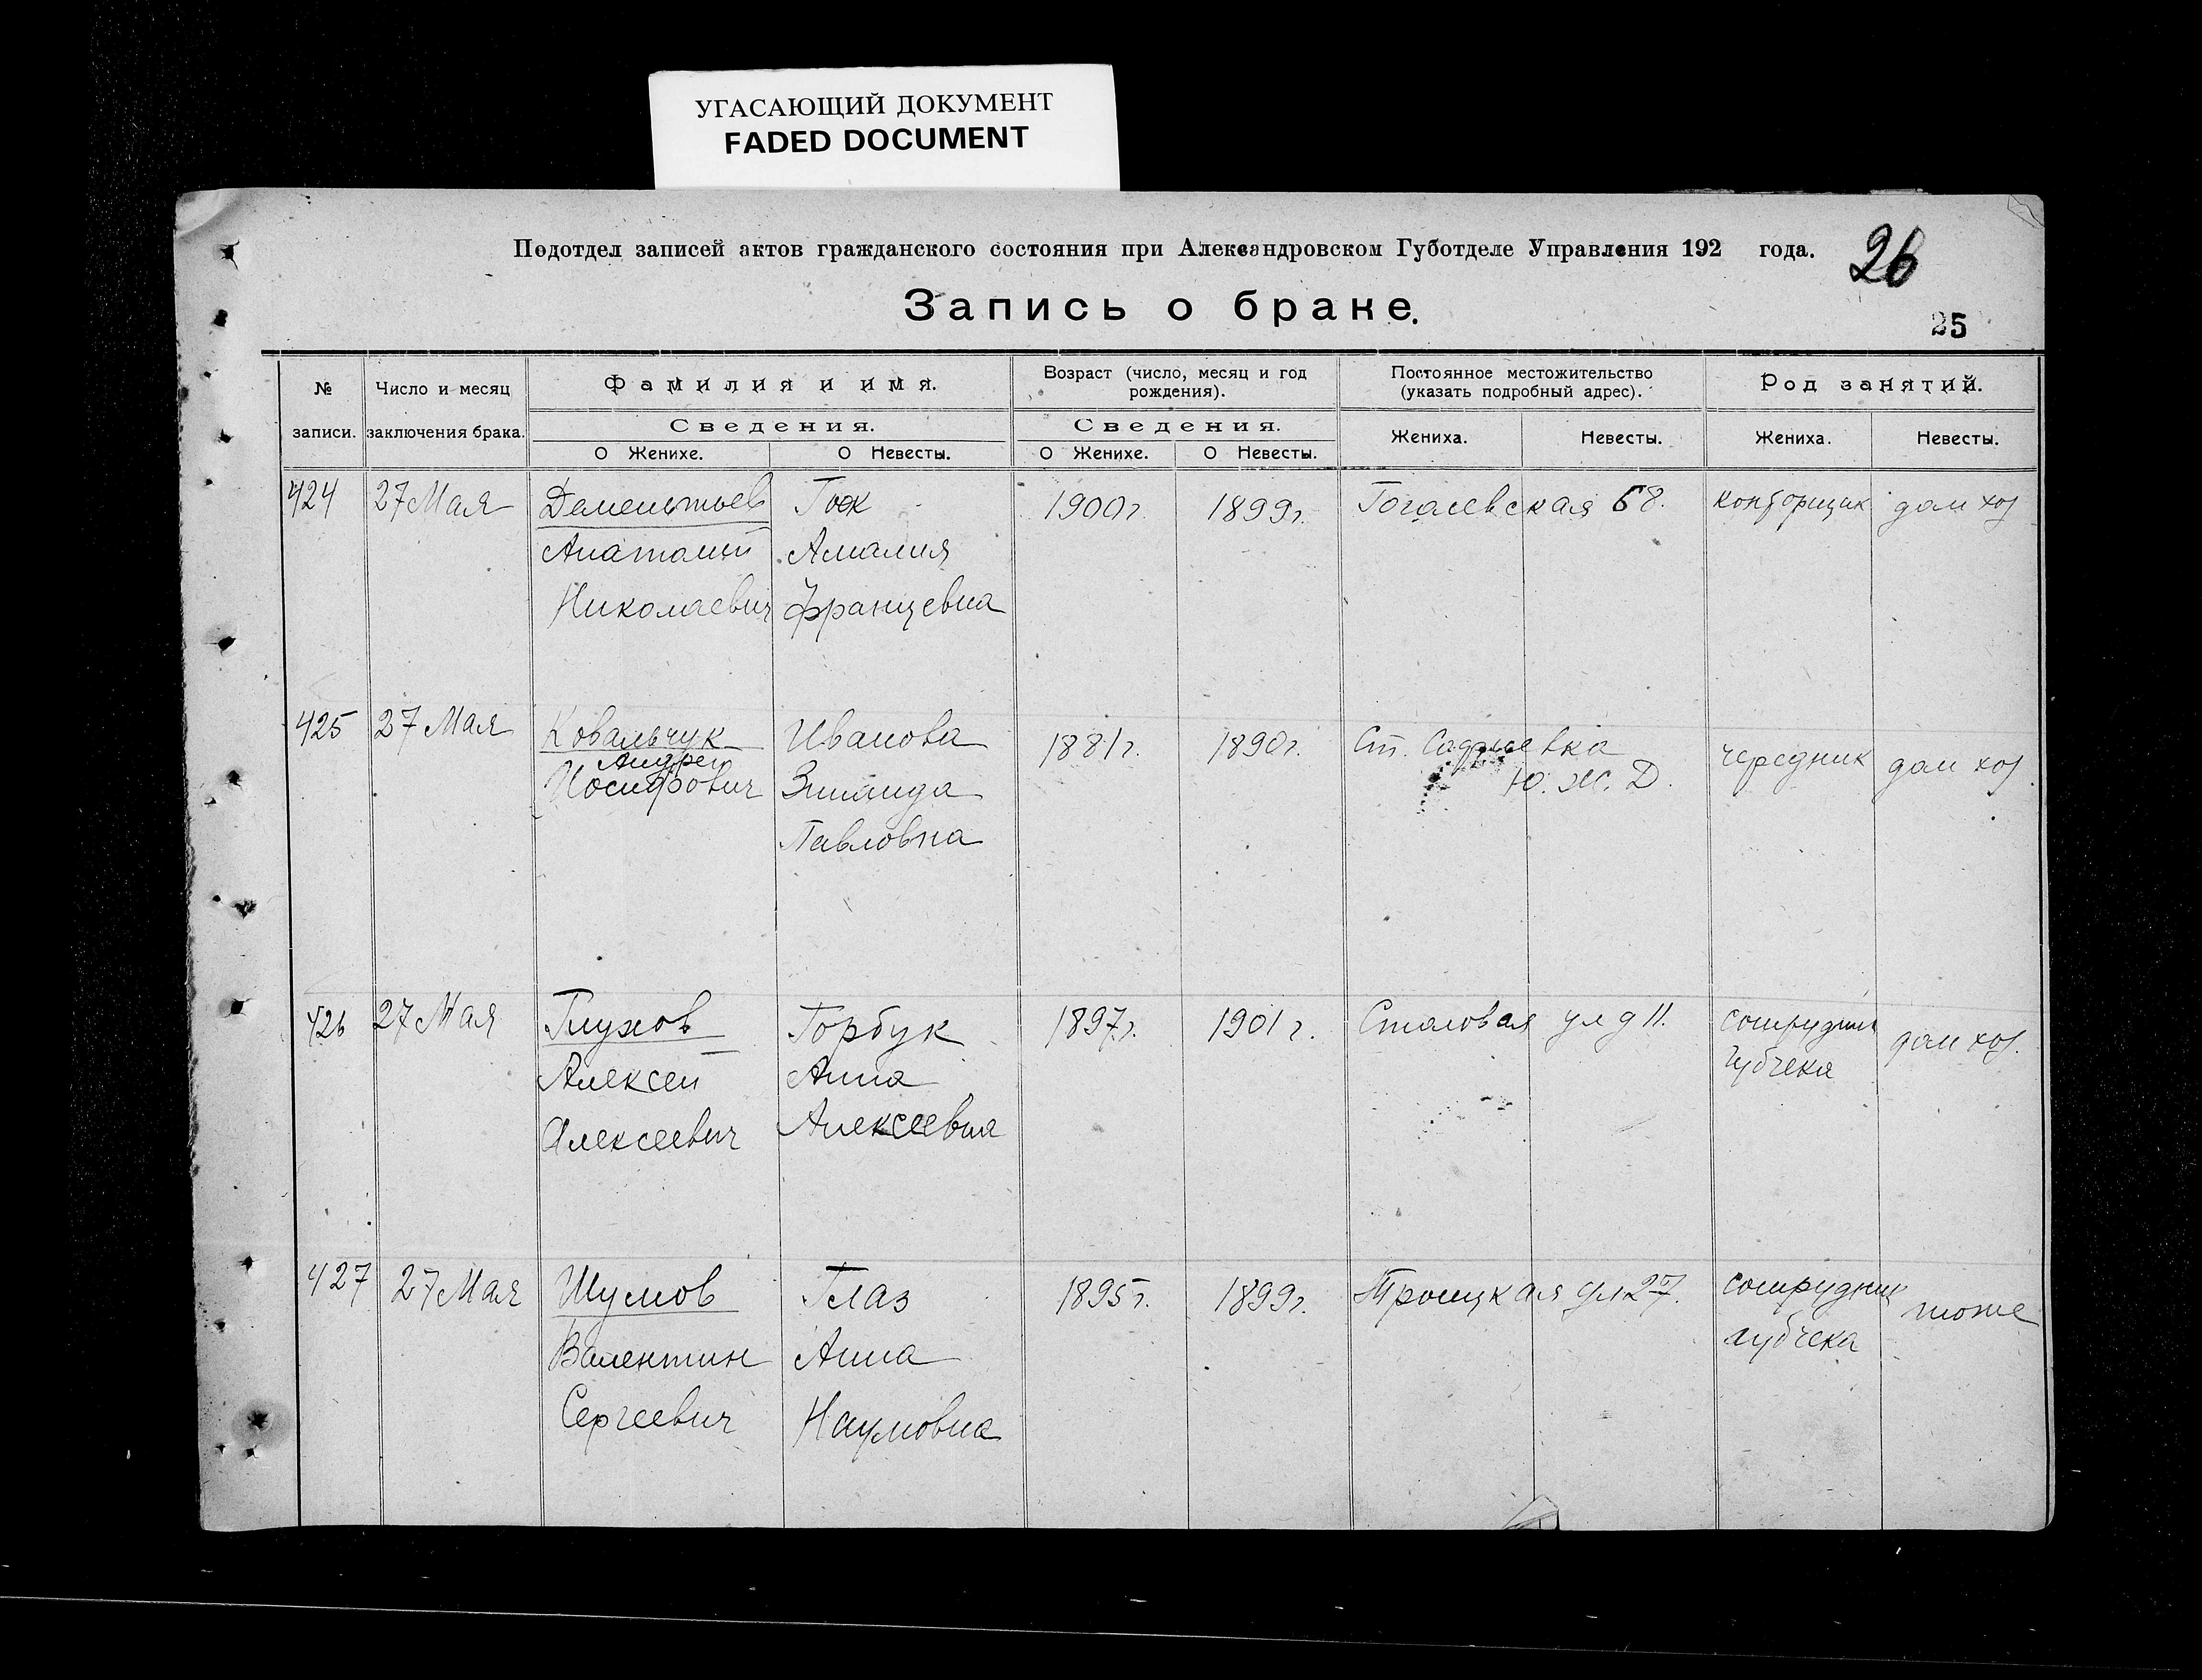 УГАСАЮЩИЙ ДОКУМЕНТ
FADED DOCUMENT
Подотдел записей актов гражданского состояния при Александровском Губотделе Управления 192 года.
26
Запись о браке.
25
№ записи.
Число и месяц заключения брака.
Фамилия и имя.
Сведения.
О Женихе. О Невесты.
Возраст (число, месяц и год рождения).
Сведения.
О Женихе. О Невесты.
Постоянное местожительство
(указать подробный адрес).
Жениха. Невесты.
Род занятий.
Жениха. Невесты.
424 27 Мая Дементьев Гок 1900 г. 1899 г. Гоголевская 68. конторщик дом хоз
Анатолий Амалия
Николаевич Францевна
425 27 Мая Ковальчук Иванова 1881 г. 1890 г. Ст. чередник дом хоз.
Андрей
Иосифович Зинаида Ю. Ж. Д.
Павловна
426 27 Мая Глухов Горбук 1897 г. 1901 г. Столовая ул д 11. сотрудник дом хоз.
Алексей Анна Губчека
Алексеевич Алексеевна
427 27 Мая Шумов Глаз 1895 г. 1899 г. Троицкая ул 27. сотрудник тоже
Валентин Анна губчека
Сергеевич Наумовна